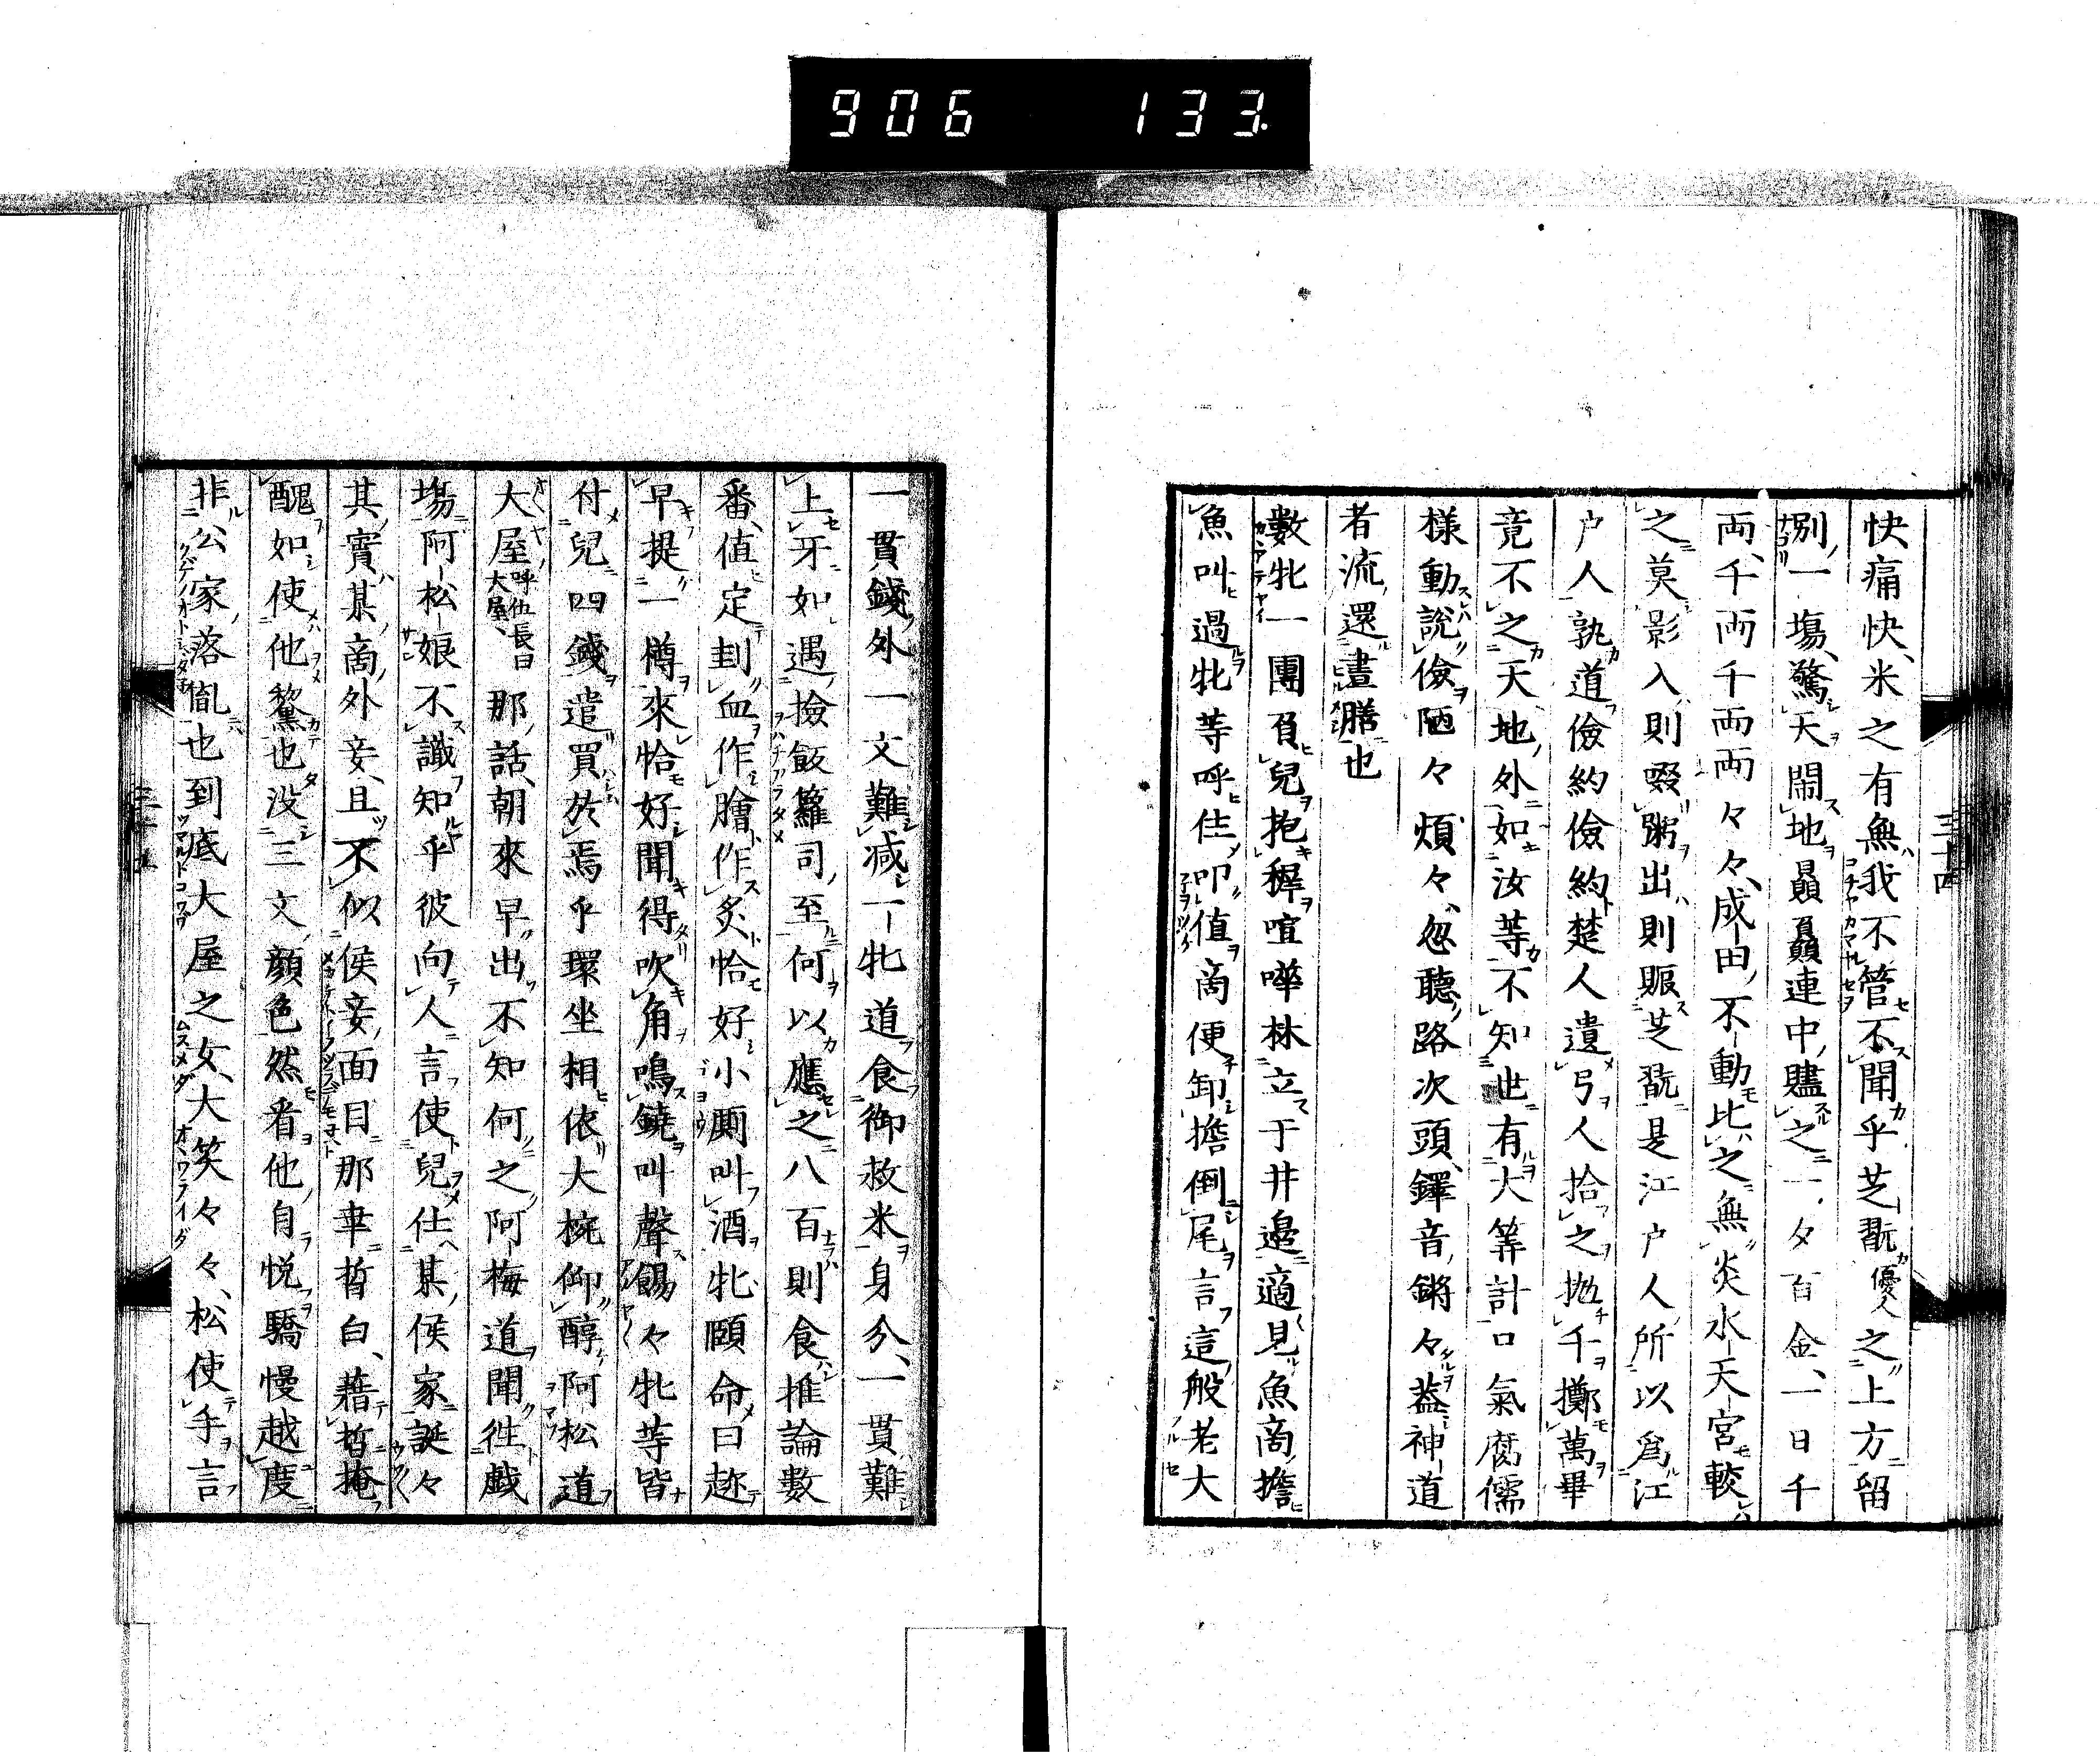 906 133.
三十四
快痛快、米之有無我不管不聞乎芝翫優人之上方留
別一塲、驚天閙地贔屓連中贐之一夕百金、一日千
両、千両千両両々々、成田不動比之無炎水天宮較
之莫影入則啜粥出則賑芝翫是江戸人所以爲江
戸人孰道儉約儉約楚人遺弓人拾之抛千擲萬畢
竟不之天地外如汝等不知世有大筭計口氣腐儒
様動説儉陋々煩々忽聽路次頭鐸音鏘々葢神道
者流還晝膳也
數牝一團負兒抱穉喧嘩林立于井邉適見魚啇擔
魚叫過牝等呼住叩値啇便卸擔倒尾言這般老大
一貫錢外一文難减一牝道食御救米身分、一貫難
上牙如遇撿飯籮司至何以應之八百則食推論數
番、値定刲血作膾作炙恰好小厮叫酒牝頤命曰趂
早提一樽來恰好聞得吹角鳴鐃叫聲餳々牝等皆
付兒四錢遣買於焉乎環坐相依大椀仰醇阿松道
大屋呼伍長曰大屋那話、朝來早出不知何之阿梅道聞徃戯
塲阿松娘不識知乎彼向人言使兒仕某侯家誕々
其實某啇外妾、且不似侯妾面目那聿晳白、藉晳掩
醜如使他黎也没三文顔色然看他自悦驕慢越度
非公家落胤也到底大屋之女、大笑々々々、松使手言